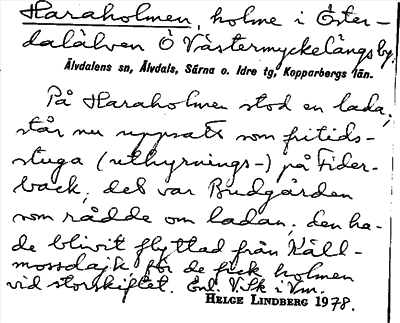 Haraholmen, holme i Öster-
dalälven Ö Västermyckelängsby,
Älvdalens sn, Älvdals, Särna o. Idre tg, Kopparbergs län.
På Haraholmen stod en lada,
står nu uppsatt som fritids-
stuga (uthyrnings-) på Fider-
back; det var Budgården
som rådde om ladan; den ha-
de blivit flyttad från Käll-
mossdajk, för de fick holmen
vid storskiftet. Enl. V.Sk i Vm.
HELGE LINDBERG 1978.